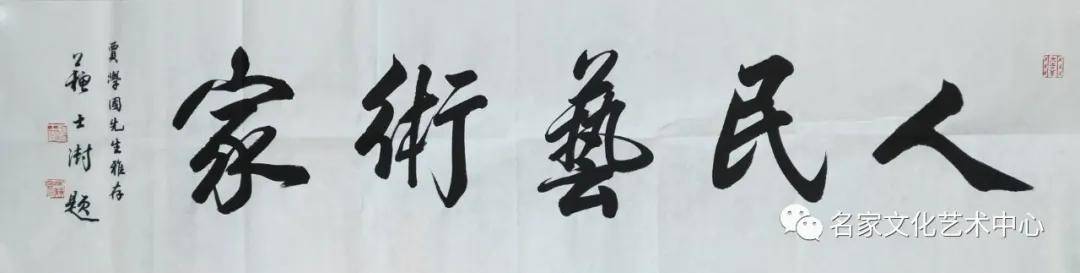 人民藝術家
賈學國先生雅存
蘇士澍題
名家文化艺术中心